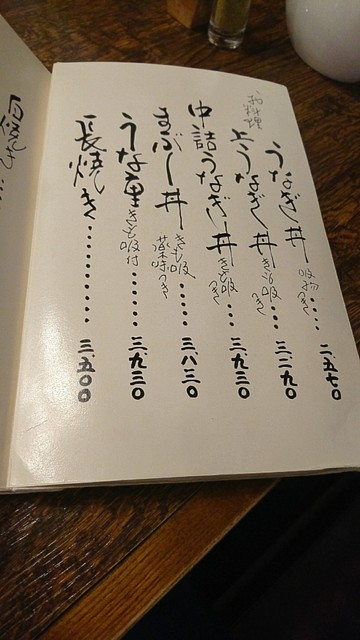 御料理
うなぎ丼 吸物つき・・・・ 二、五七〇
上うなぎ丼 きも吸つき・・・ 三、二九〇
中詰うなぎ丼 きも吸つき・・・ 三、九三〇
まぶし丼 きも吸 薬味つき・・・・ 三、八二〇
うな重 きも吸付・・・・・ 三、九三〇
長焼き・・・・・・・・・ 三、五〇〇
白焼き・・